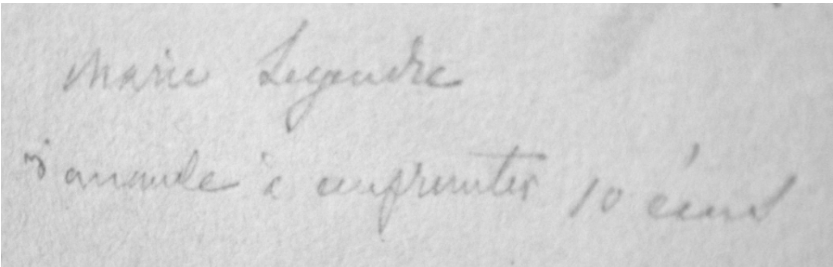 Marie Legendre
demande à emprunter 10 écus